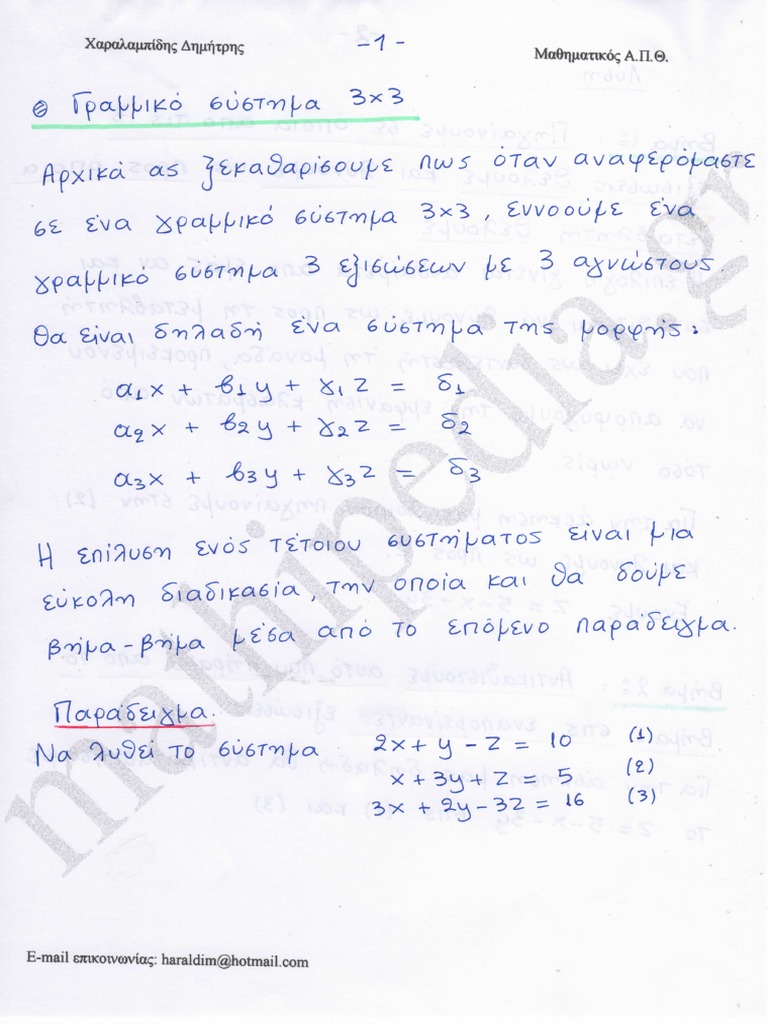 Χαραλαμπίδης Δημήτρης
-1-
Μαθηματικός Α.Π.Θ.
Γραμμικό σύστημα 3×3
Αρχικά ας ξεκαθαρίσουμε πως όταν αναφερόμαστε
σε ένα γραμμικό σύστημα 3×3, εννοούμε ένα
γραμμικό σύστημα 3 εξισώσεων με 3 αγνώστους.
Θα είναι δηλαδή ένα σύστημα της μορφής:
α₁x + β₁y + γ₁z = δ₁
α₂x + β₂y + γ₂z = δ₂
α₃x + β₃y + γ₃z = δ₃
Η επίλυση ενός τέτοιου συστήματος είναι μια
εύκολη διαδικασία, την οποία και θα δούμε
βήμα-βήμα μέσα από το επόμενο παράδειγμα.
Παράδειγμα.
Να λυθεί το σύστημα 2x + y - z = 10 (1)
x + 3y + z = 5 (2)
3x + 2y - 3z = 16 (3)
mathipedia.gr
E-mail επικοινωνίας: haraldim@hotmail.com